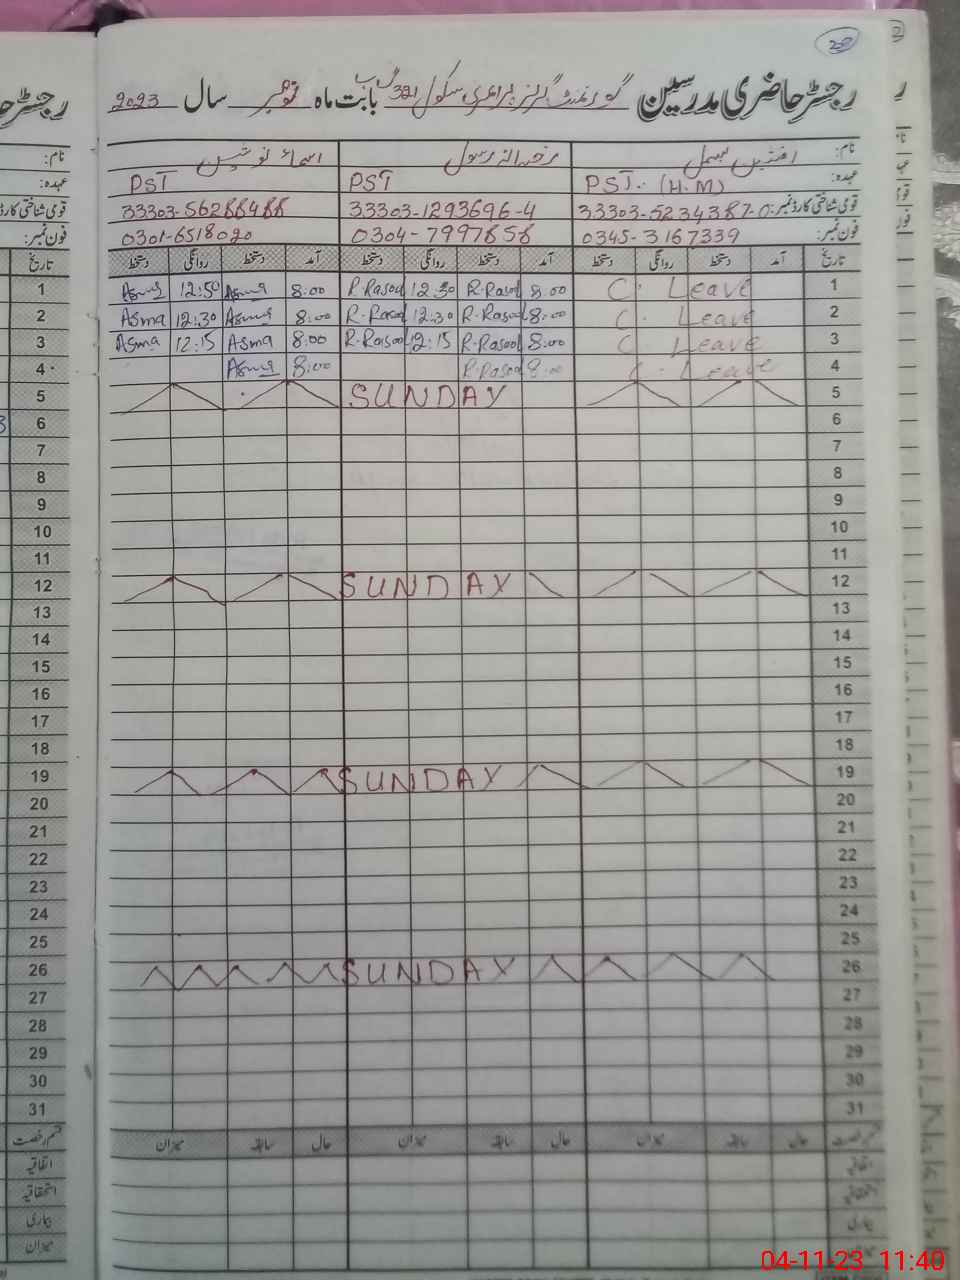 رجسٹر حاضری مدرسین گورنمنٹ گرلز پرائمری سکول 321 گ ب بابت ماہ نومبر سال 2023
نام: افشین بسمل رخسانہ رسول اسماء نوشین
عہدہ: PST. (H.M) PST PST
قومی شناختی کارڈ نمبر: 33303-5234387-0 33303-1293696-4 33303-56288488
فون نمبر: 0345-3167339 0304-7997858 0301-6518020
تاریخ آمد دستخط روانگی دستخط آمد دستخط روانگی دستخط آمد دستخط روانگی دستخط
1 C. Leave 8:00 R-Rasool 12:30 R-Rasool 8:00 Asma 12:50 Asma
2 C. Leave 8:00 R-Rasool 12:30 R-Rasool 8:00 Asma 12:30 Asma
3 C. Leave 8:00 R-Rasool 12:15 R-Rasool 8:00 Asma 12:15 Asma
4 C. Leave 8:00 R-Rasool 8:00 Asma
5 SUNDAY
6
7
8
9
10
11
12 SUNDAY
13
14
15
16
17
18
19 SUNDAY
20
21
22
23
24
25
26 SUNDAY
27
28
29
30
31
قسم رخصت حال سابقہ میزان حال سابقہ میزان حال سابقہ میزان
اتفاقیہ
استحقاقیہ
بیماری
میزان
04-11-23 11:40